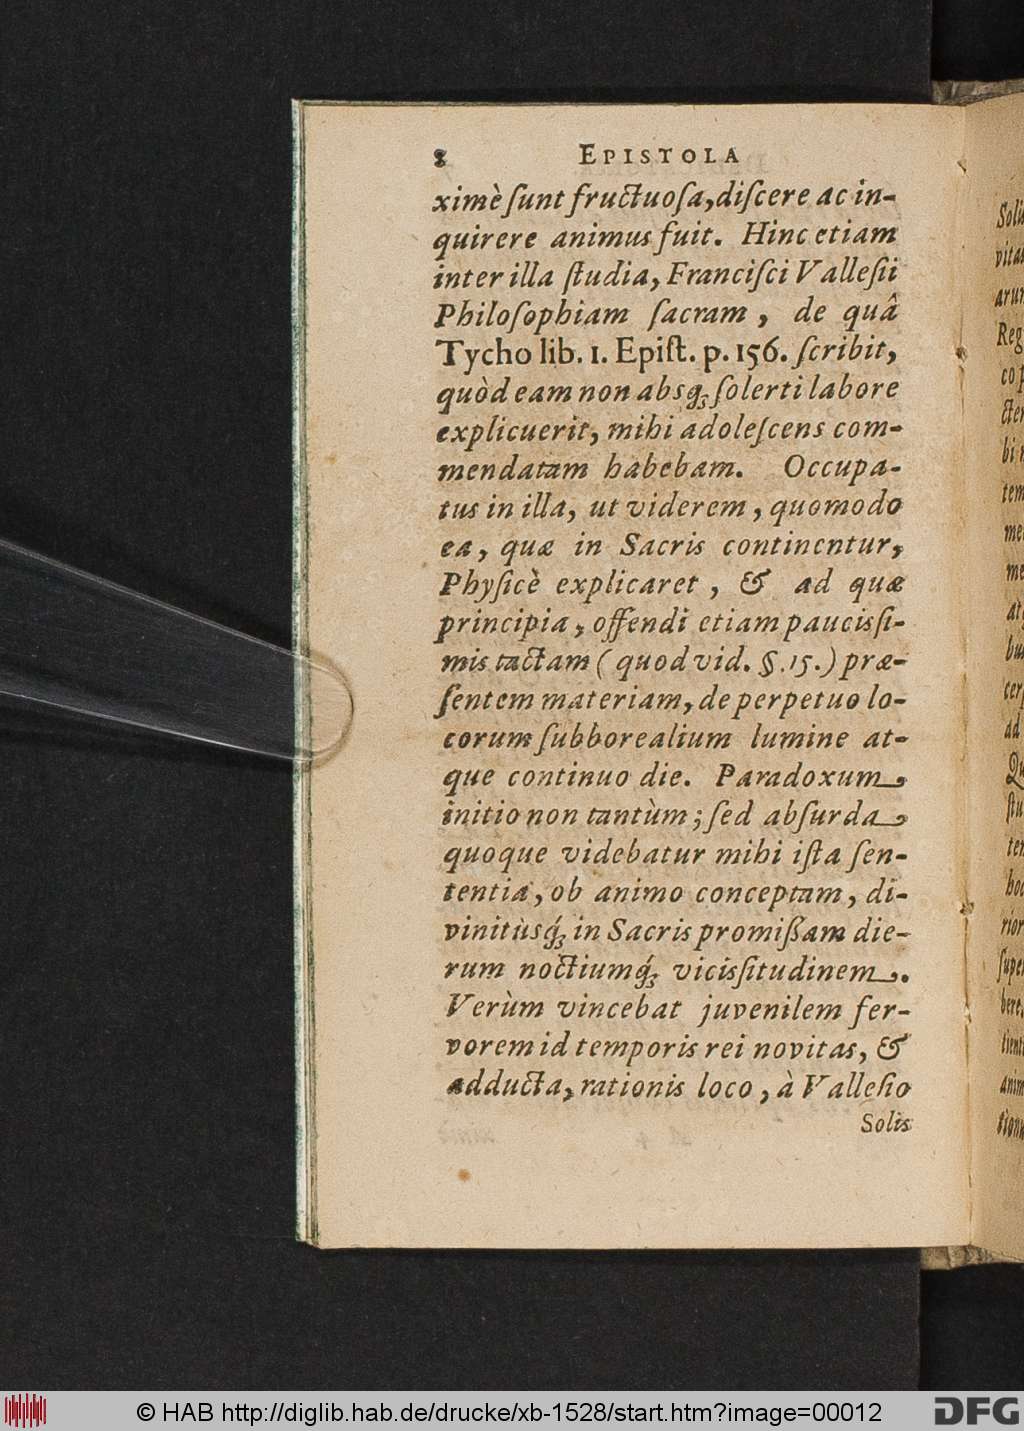 8 EPISTOLA
ximè ſunt fructuoſa, diſcere ac in-
quirere animus fuit. Hinc etiam
inter illa ſtudia, Franciſci Valleſii
Philoſophiam ſacram, de quâ
Tycho lib. 1. Epiſt. p. 156. ſcribit,
quòd eam non absq; ſolerti labore
explicuerit, mihi adoleſcens com-
mendatam habebam. Occupa-
tus in illa, ut viderem, quomodo
ea, quæ in Sacris continentur,
Phyſicè explicaret, & ad quæ
principia, offendi etiam paucisſi-
mis tactam (quod vid. §. 15.) præ-
ſentem materiam, de perpetuo lo-
corum ſubborealium lumine at-
que continuo die. Paradoxum
initio non tantùm; ſed abſurda
quoque videbatur mihi iſta ſen-
tentia, ob animo conceptam, di-
vinitùsq́; in Sacris promiſſam die-
rum noctiumq́; vicisſitudinem.
Verùm vincebat juvenilem fer-
vorem id temporis rei novitas, &
adducta, rationis loco, à Valleſio
Solis
© HAB http://diglib.hab.de/drucke/xb-1528/start.htm?image=00012
DFG